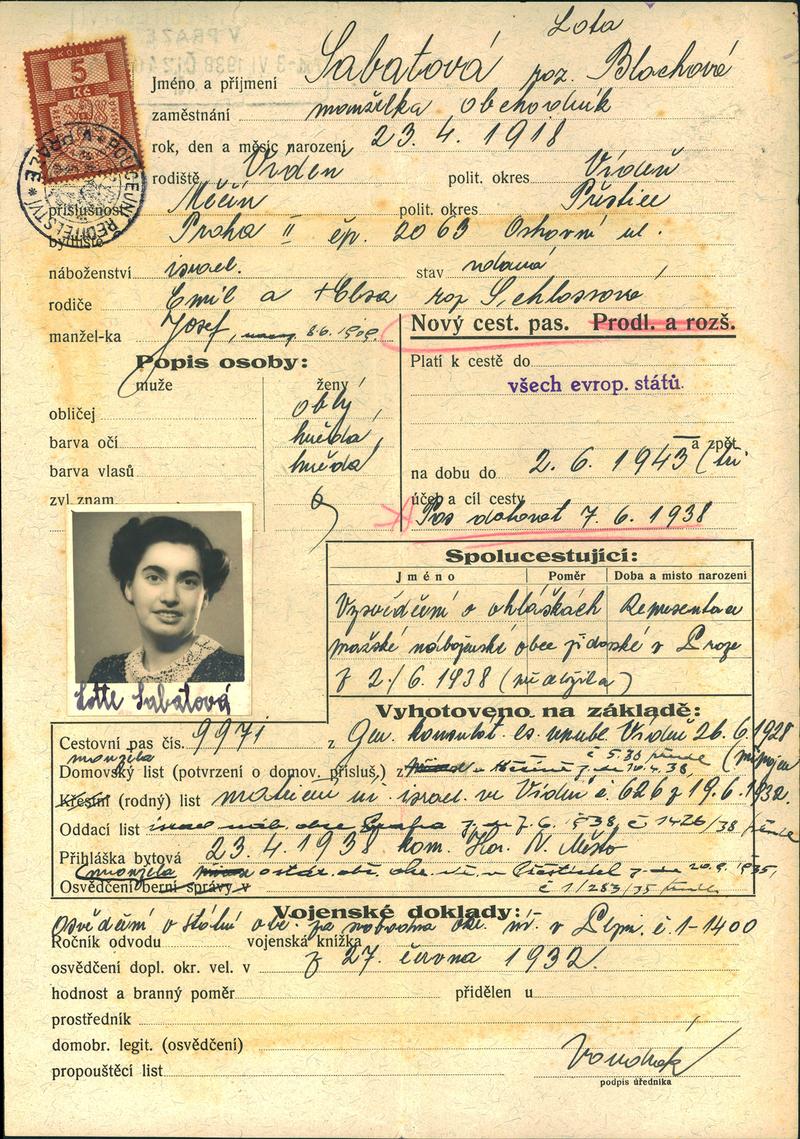 Lota
Jméno a příjmení Sabatová roz. Blochová
KOLEK
5
Kč
zaměstnání manželka obchodník
rok, den a měsíc narození 23. 4. 1918
rodiště Vídeň polit. okres Vídeň
příslušnost Měčín polit. okres Přeštice
bydliště Praha II čp. 2063 Ostrovní ul.
POLICEJNÍ ŘEDITELSTVÍ V PRAZE
náboženství israel. stav vdaná
rodiče Emil a Elsa roz Schlossová
manžel-ka Josef, 8.6.1909.
Nový cest. pas. Prodl. a rozš.
Popis osoby:
muže ženy
Platí k cestě do
všech evrop. států.
obličej oblý
barva očí hnědá
barva vlasů hnědá
zvl. znam.
a zpět
na dobu do 2. 6. 1943 (tři
účel a cíl cesty
Pas datovat 7. 6. 1938
Spolucestující:
Jméno Poměr Doba a místo narození
Vysvědčení o ohláškách Representace
pražské náboženské obce židovské v Praze
z 2./6. 1938
Lotte Sabatová
Vyhotoveno na základě:
Cestovní pas čís. 9971 z Gen. konsulát čs. republ. Vídeň 26. 6. 1928
manžela
Domovský list (potvrzení o domov. přísluš.) z
Křestní (rodný) list matriční úř. israel. ve Vídni č. 626 z 19. 6. 1932.
Oddací list israel. náb. obce Praha z 7. 6. 1938, č 1426/38
Přihláška bytová 23. 4. 1938 kom. Hor. N. Město
manžela
Osvědčení berní správy v
č 1/283/35
Vojenské doklady:
Osvědčení o státní obč. č. 1-1400
Ročník odvodu vojenská knížka
osvědčení dopl. okr. vel. v z 27. června 1932.
hodnost a branný poměr přidělen u
prostředník
domobr. legit. (osvědčení)
propouštěcí list
Vondrák
podpis úředníka